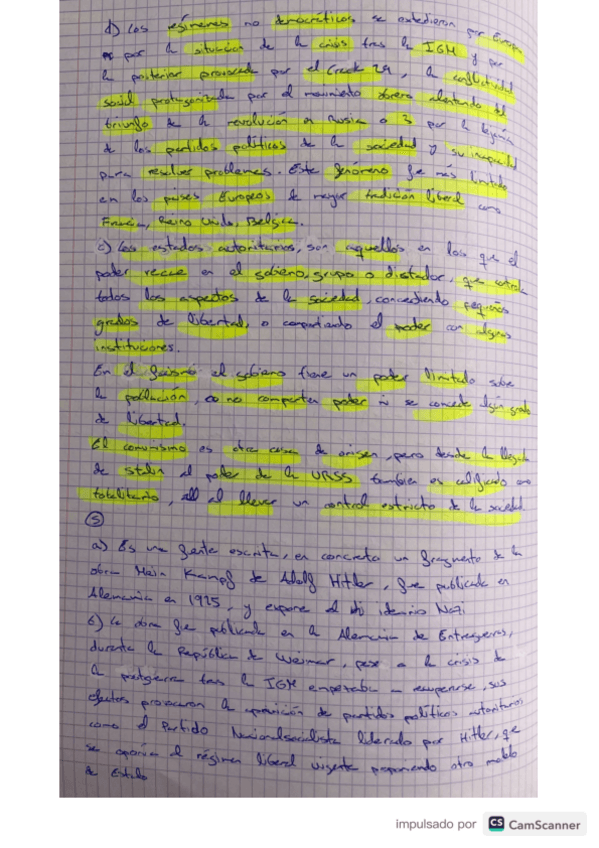 d) Los regímenes no democráticos se extendieron por Europa
por la situación de la crisis tras la IGM y por
la posterior provocada por el Crack 29, la conflictividad
social protagonizada por el movimiento obrero alentando el
triunfo de la revolución en Rusia o 3 por la lejanía
de los partidos políticos de la sociedad y su incapacidad
para resolver problemas. Este fenómeno fue más limitado
en los países Europeos de mayor tradición liberal como
Francia, Reino Unido, Bélgica.
c) Los estados autoritarios, son aquellos en los que el
poder recae en el gobierno, grupo o dictador, que controla
todos los aspectos de la sociedad, concediendo pequeños
grados de libertad, o compartiendo el poder con algunas
instituciones.
En el fascismo el gobierno tiene un poder ilimitado sobre
la población, no comparten poder ni se concede ningún grado
de libertad.
El comunismo es otra cosa de origen, pero desde la llegada
de Stalin al poder de la URSS también es calificado como
totalitario, al llevar un control estricto de la sociedad.
5
a) Es una fuente escrita, en concreto un fragmento de la
obra Mein Kampf de Adolf Hitler, fue publicada en
Alemania en 1925, y expone el ideario Nazi
b) La obra fue publicada en la Alemania de Entreguerras,
durante la República de Weimar, pese a la crisis de
la postguerra tras la IGM empezaba a recuperarse, sus
efectos provocaron la aparición de partidos políticos autoritarios
como el Partido Nacionalsocialista liderado por Hitler, que
se oponía al régimen liberal vigente proponiendo otro modelo
de Estado
impulsado por CS CamScanner